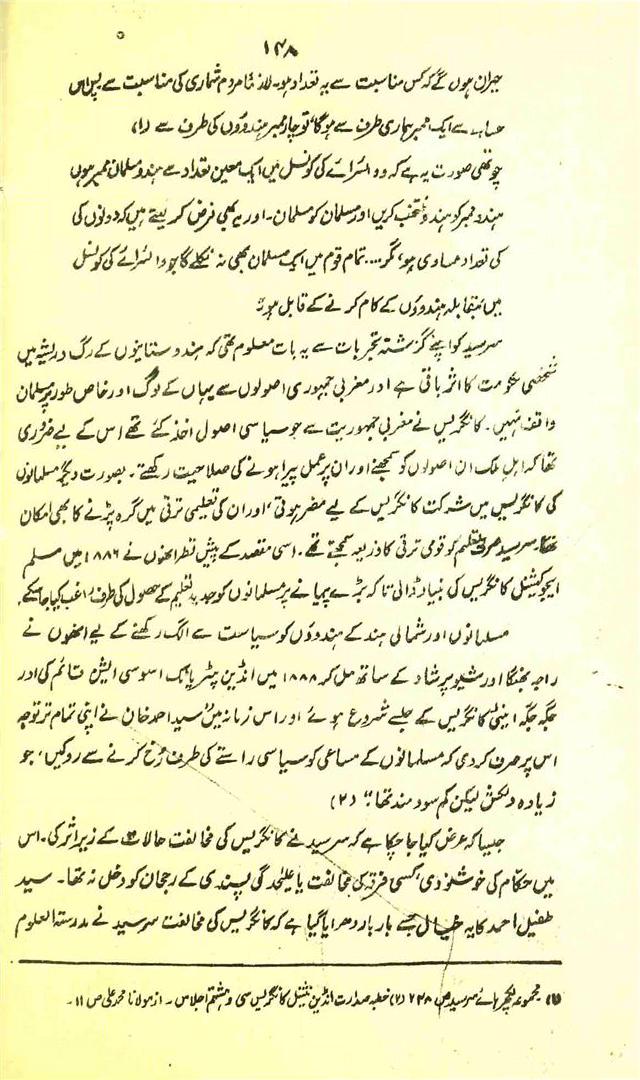 ۱۴۸
حیران ہوں گے کہ کس مناسبت سے یہ تعداد ہو۔ لازماً مردم شماری کی مناسبت سے پس اس
حساب سے ایک ممبر ہماری طرف سے ہوگا، تو چار ممبر ہندوؤں کی طرف سے (۱)
چوتھی صورت یہ ہے کہ وہ وائسرائے کی کونسل میں ایک معین تعداد سے ہندو مسلمان ممبر ہوں
ہندو ممبر کو ہندو منتخب کریں اور مسلمان کو مسلمان۔ اور یہ بھی فرض کر لیتے ہیں کہ دونوں کی
کی تعداد مساوی ہو، مگر.... تمام قوم میں ایک مسلمان بھی نہ نکلے گا جو وائسرائے کی کونسل
میں بمقابلہ ہندوؤں کے کام کرنے کے قابل ہو"۔
سرسید کو اپنے گزشتہ تجربات سے یہ بات معلوم تھی کہ ہندوستانیوں کے رگ و ریشے میں
شخصی حکومت کا اثر باقی ہے اور مغربی جمہوری اصولوں سے یہاں کے لوگ اور خاص طور پر مسلمان
واقف نہیں۔ کانگریس نے مغربی جمہوریت سے جو سیاسی اصول اخذ کئے تھے اس کے لیے ضروری
تھا کہ اہل ملک ان اصولوں کو سمجھنے اور ان پر عمل پیرا ہونے کی صلاحیت رکھتے۔ بصورت دیگر مسلمانوں
کی کانگریس میں شرکت کانگریس کے لیے مضر ہوتی، اور ان کی تعلیمی ترقی میں گرہ پڑنے کا بھی امکان
تھا۔ سرسید صرف تعلیم کو قومی ترقی کا ذریعہ سمجھتے تھے۔ اسی مقصد کے پیش نظر انھوں نے ۱۸۸۶ میں مسلم
ایجوکیشنل کانگریس کی بنیاد ڈالی تاکہ بڑے پیمانے پر مسلمانوں کو جدید تعلیم کے حصول کی طرف راغب کیا جا سکے۔
مسلمانوں اور شمالی ہند کے ہندوؤں کو سیاست سے الگ رکھنے کے لیے انھوں نے
راجہ بھنگا اور شیو پرشاد کے ساتھ مل کر ۱۸۸۸ میں انڈین پیٹریاٹک اسوسی ایشن قائم کی اور
جگہ جگہ اینٹی کانگریس کے جلسے شروع ہوئے اور اس زمانہ میں "سید احمد خان نے اپنی تمام تر توجہ
اس پر صرف کر دی کہ مسلمانوں کے مساعی کو سیاسی راستے کی طرف رخ کرنے سے روکیں، جو
زیادہ دلکش لیکن کم سود مند تھا"۔ (۲)
جیسا کہ عرض کیا جا چکا ہے کہ سرسید نے کانگریس کی مخالفت حالات کے زیر اثر کی۔ اس
میں حکام کی خوشنودی، کسی فرقہ کی مخالفت یا علیحدگی پسندی کے رجحان کو دخل نہ تھا۔ سید
طفیل احمد کا یہ خیال جسے بار بار دھرایا گیا ہے کہ کانگریس کی مخالفت سرسید نے مدرستہ العلوم
(۱) مجموعہ لیکچر ہائے سرسید ص ۲۳۸ (۲) خطبہ صدارت انڈین نیشنل کانگریس سی و ہشتم اجلاس۔ از مولانا محمد علی ص ۱۱۔